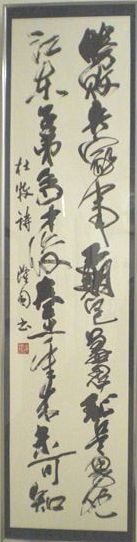 勝敗兵家事不期包羞忍恥是男児
江东子弟多才俊卷土重来未可知
杜牧詩 书